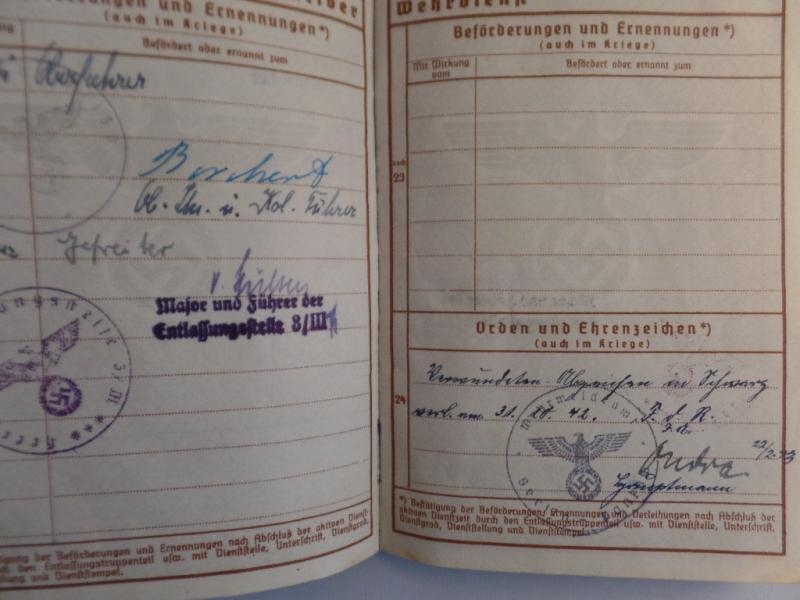 rungen und Ernennungen*)
(auch im Kriege)
Befördert oder ernannt zum
Oberführer
Borchert
Ob. Ltn. u. Kol. Führer
Gefreiter
Major und Führer der
Entlassungsstelle 3/III
gung der Beförderungen und Ernennungen nach Abschluß der aktiven Dienst-
den Entlassungstruppenteil usw. mit Dienststelle, Unterschrift, Dienstgrad,
lung und Dienststempel.
Wehrdienst
Beförderungen und Ernennungen*)
(auch im Kriege)
Mit Wirkung vom
Befördert oder ernannt zum
noch 23
Orden und Ehrenzeichen*)
(auch im Kriege)
24
Verwundeten-Abzeichen in Schwarz
verl. am 31. 10. 42. F. d. R.
22/2.43
Hauptmann
Wehrmeldeamt
*) Bestätigung der Beförderungen, Ernennungen und Verleihungen nach Abschluß der
aktiven Dienstzeit durch den Entlassungstruppenteil usw. mit Dienststelle, Unterschrift,
Dienstgrad, Dienststellung und Dienststempel.